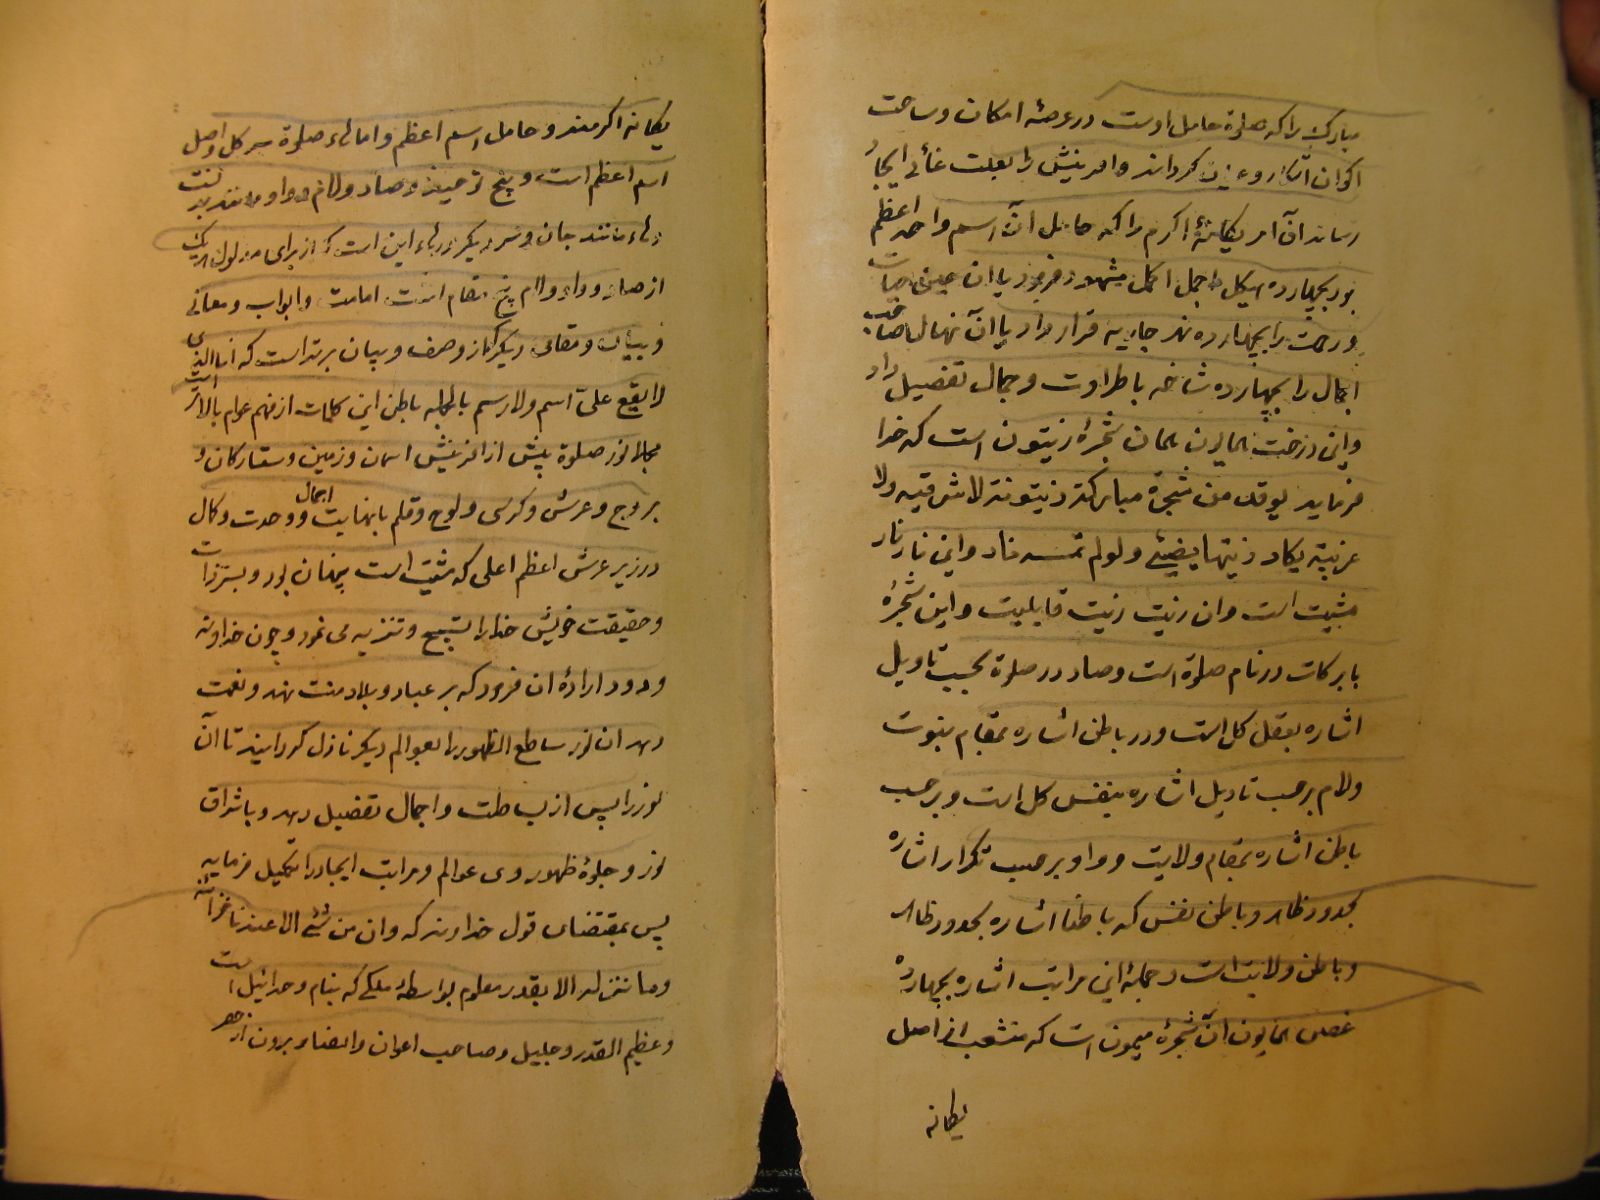 مبارک را که صلوة حامل اوست در عرصهٔ امکان و ساحت
اکوان آشکار و عیان گرداند و آفرینش را بعلت غائی ایجاد
رساند آن امر یگانهٔ اکرم را که حامل آن اسم واحد اعظم
بود بچهارده هیکل اجمل اکمل مشهود فرمود یا آن عین حیات
و رحمت را بچهارده نهر جاریه قرار داد یا آن نهال
اجمال را بچهارده شاخه با طراوت و جمال تفصیل داد
و این درخت همایون همان شجرهٔ زیتون است که خدا
فرماید یوقد من شجرة مبارکة زیتونة لا شرقیه ولا
غربیة یکاد زیتها یضیئ ولو لم تمسه نار و این نار نار
مشیت است و ان زیت زیت قابلیت و این شجرهٔ
با برکات در نام صلوة است و صاد در صلوة بحسب تاویل
اشاره بعقل کل است و در باطن اشاره بمقام نبوت
و لام بر حسب تاویل اشاره بنفس کل است و بر حسب
باطن اشاره بمقام ولایت و واو بر حسب تکرار اشاره
بحدود ظاهر و باطن نفس که باطنا اشاره بحدود ظاهر
و باطن ولایت است و جملهٔ این مراتب اشاره بچهارده
غصن همایون آن شجرهٔ میمون است که منشعب از اصل
یگانه
یگانه اکرمند و حامل اسم اعظم و اما هاء صلوة سر کل و اصل
اسم اعظم است و پنج حرف صاد و لام و واو مانند
هاء مانند جان و سر دیگر در هاء این است که از برای مدلول هر یک
از صاد و واو و لام پنج مقام است امامت و ابواب و معانی
و بیان و مقامی دیگر که از وصف و بیان برتر است که انا الذی
لا یقع علی اسم ولا رسم بالجمله باطن این کلمات از فهم عوام بالاتر است
مجملا نور صلوة پیش از آفرینش آسمان و زمین و ستارگان و
بروج و عرش و کرسی و لوح و قلم با نهایت اجمال و وحدت و کمال
در زیر عرش اعظم اعلی که مشیت است پنهان بود و بسر ذات
و حقیقت خویش خدا را تسبیح و تنزیه می نمود و چون خداوند
ودود ارادهٔ ان فرمود که بر عباد و بلاد منت نهد و نعمت
دهد ان نور ساطع الظهور را بعوالم دیگر نازل گردانید تا آن
نور را پس از بساطت و اجمال تفصیل دهد و باشراق
نور و جلوهٔ ظهور وی عوالم و مراتب ایجاد را تکمیل فرماید
پس بمقتضای قول خداوند که وان من شئ الا عندنا خزائنه
وما ننزله الا بقدر معلوم بواسطهٔ ملکی که بنام وحدائیل است
و عظیم القدر و جلیل و صاحب اعوان و انصار برون از حصر